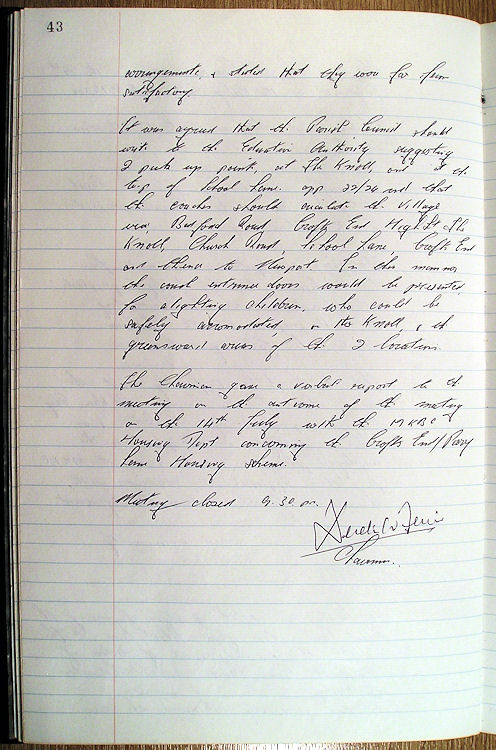 43
arrangements, & stated that they were far from
satisfactory
It was agreed that the Parish Council should
write to the Education Authority suggesting
2 pick up points, at The Knoll, and at the
top of School Lane. opp 22/24 and that
the coaches should circulate the village
via Bedford Road Crofts End High St The
Knoll, Church Road, School Lane Crofts End
and thence to Newport. In this manner
the coach entrance doors would be presented
for alighting children, who could be
safely accommodated on the Knoll, & the
greensward areas of the 2 locations.
The Chairman gave a verbal report to the
meeting on the outcome of the meeting
on the 14th July with the MKBC
Housing Dept concerning the Crofts End/Perry
Lane Housing scheme.
Meeting closed 9.30 pm.
Derek W
Chairman.